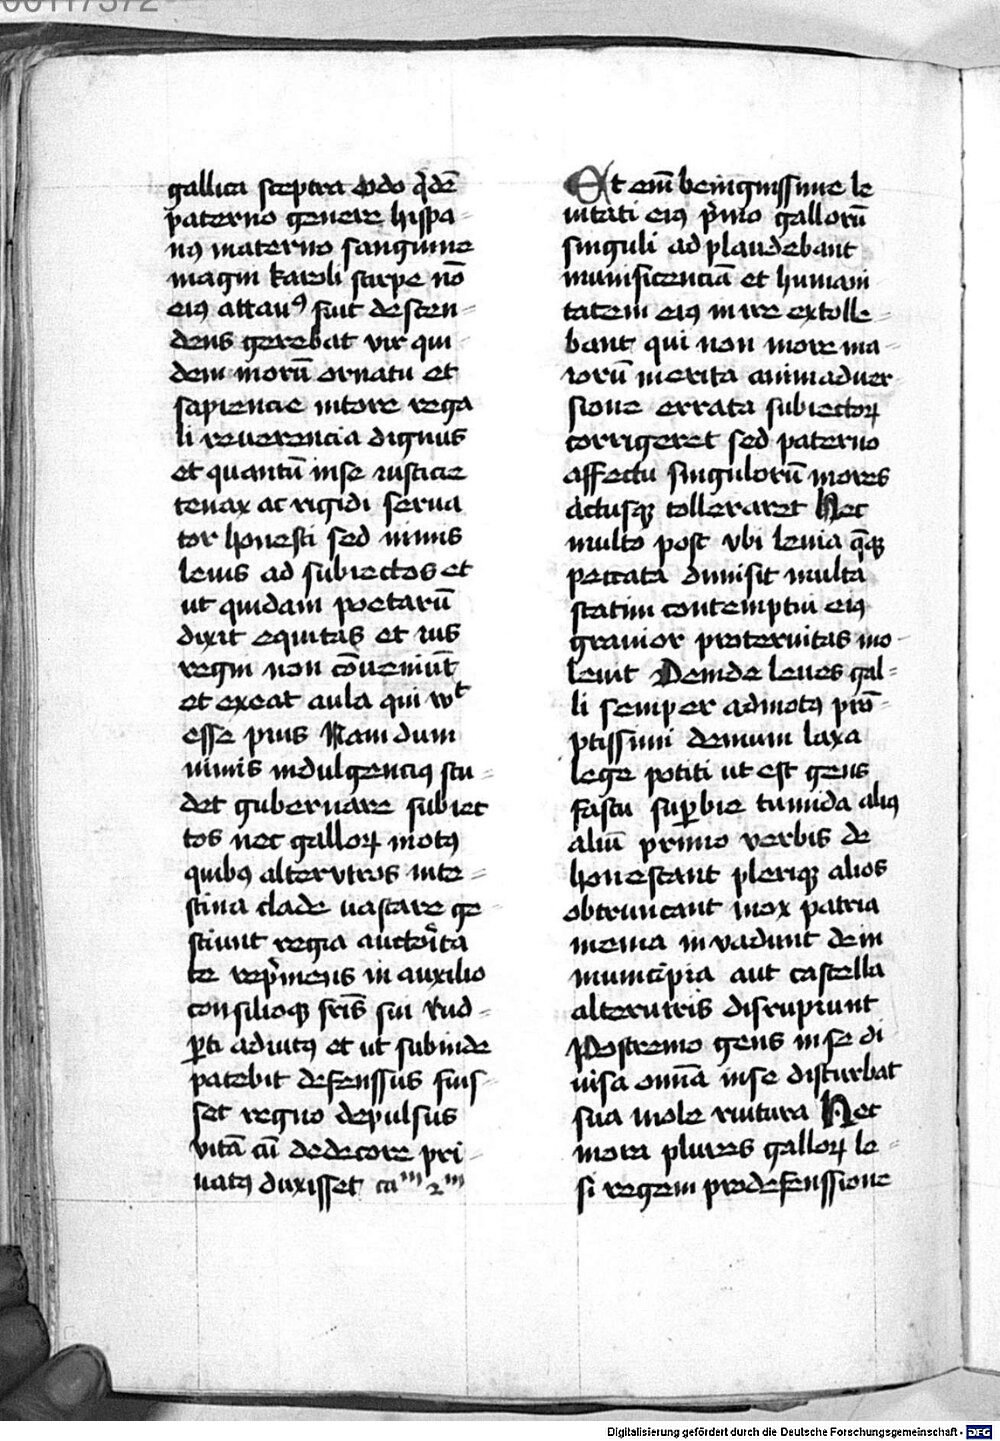 00117372
gallica sceptra Odo q̄dē
paterno genere hispa-
nꝯ materno sanguine
magni karoli stirpe nō
eiꝯ attauꝯ fuit descen-
dens gerebat vir qui
dem morū ornatu et
sapiencie nitore rega
li reuerencia dignus
et quantū inse iusticie
tenax ac rigidi serua
tor honesti sed nimis
leuis ad subiectos et
ut quidam poetarū
dixit equitas et ius
regni non cōueniūt
et exeat aula qui wᵗ
esse pius Nam dum
nimis indulgenciꝯ stu-
det gubernare subiec
tos nec galloꝝ motꝯ
quibꝯ alterutros inte-
stina clade uastare ge
stiunt regia auctoīta
te repͥmens in auxilio
consilioqꝫ frīs sui Rud-
ꝑti adiutꝯ et ut subinde
patebit defenssus fuis-
set regno depulsus
vitā cū dedecore pri-
uatꝯ duxisset caᵐ 2ᵐ
Et em̄ benignissime le
uitati eiꝯ pͥmo gallorū
singuli ad plaudebant
munificenciā et humani
tatem eiꝯ mire extolle-
bant qui non more ma-
iorū merita animaduer
sione errata subiectoꝝ
corrigeret sed paterno
affectu singulorū mores
actusqꝫ tolleraret Nec
multo post vbi leuia q̄qꝫ
peccata dimisit multa
statim contemptui eiꝯ
grauior proteruitas ino-
leuit Deinde leues gal-
li semper admotꝯ prō-
ptissimi demum laxa
lege potiti ut est gens
fastu suꝑbie tumida aliꝯ
aliū primo verbis de
honestant pleriqꝫ alios
obtruncant mox patria
menia inuadunt dein
municīpia aut castella
alterutris disrupiunt
Postremo gens inse di
uisa omīa inse disturbat
sua mole ruitura Nec
mora plures galloꝝ le-
si regem prodefenssione
Digitalisierung gefördert durch die Deutsche Forschungsgemeinschaft - DFG